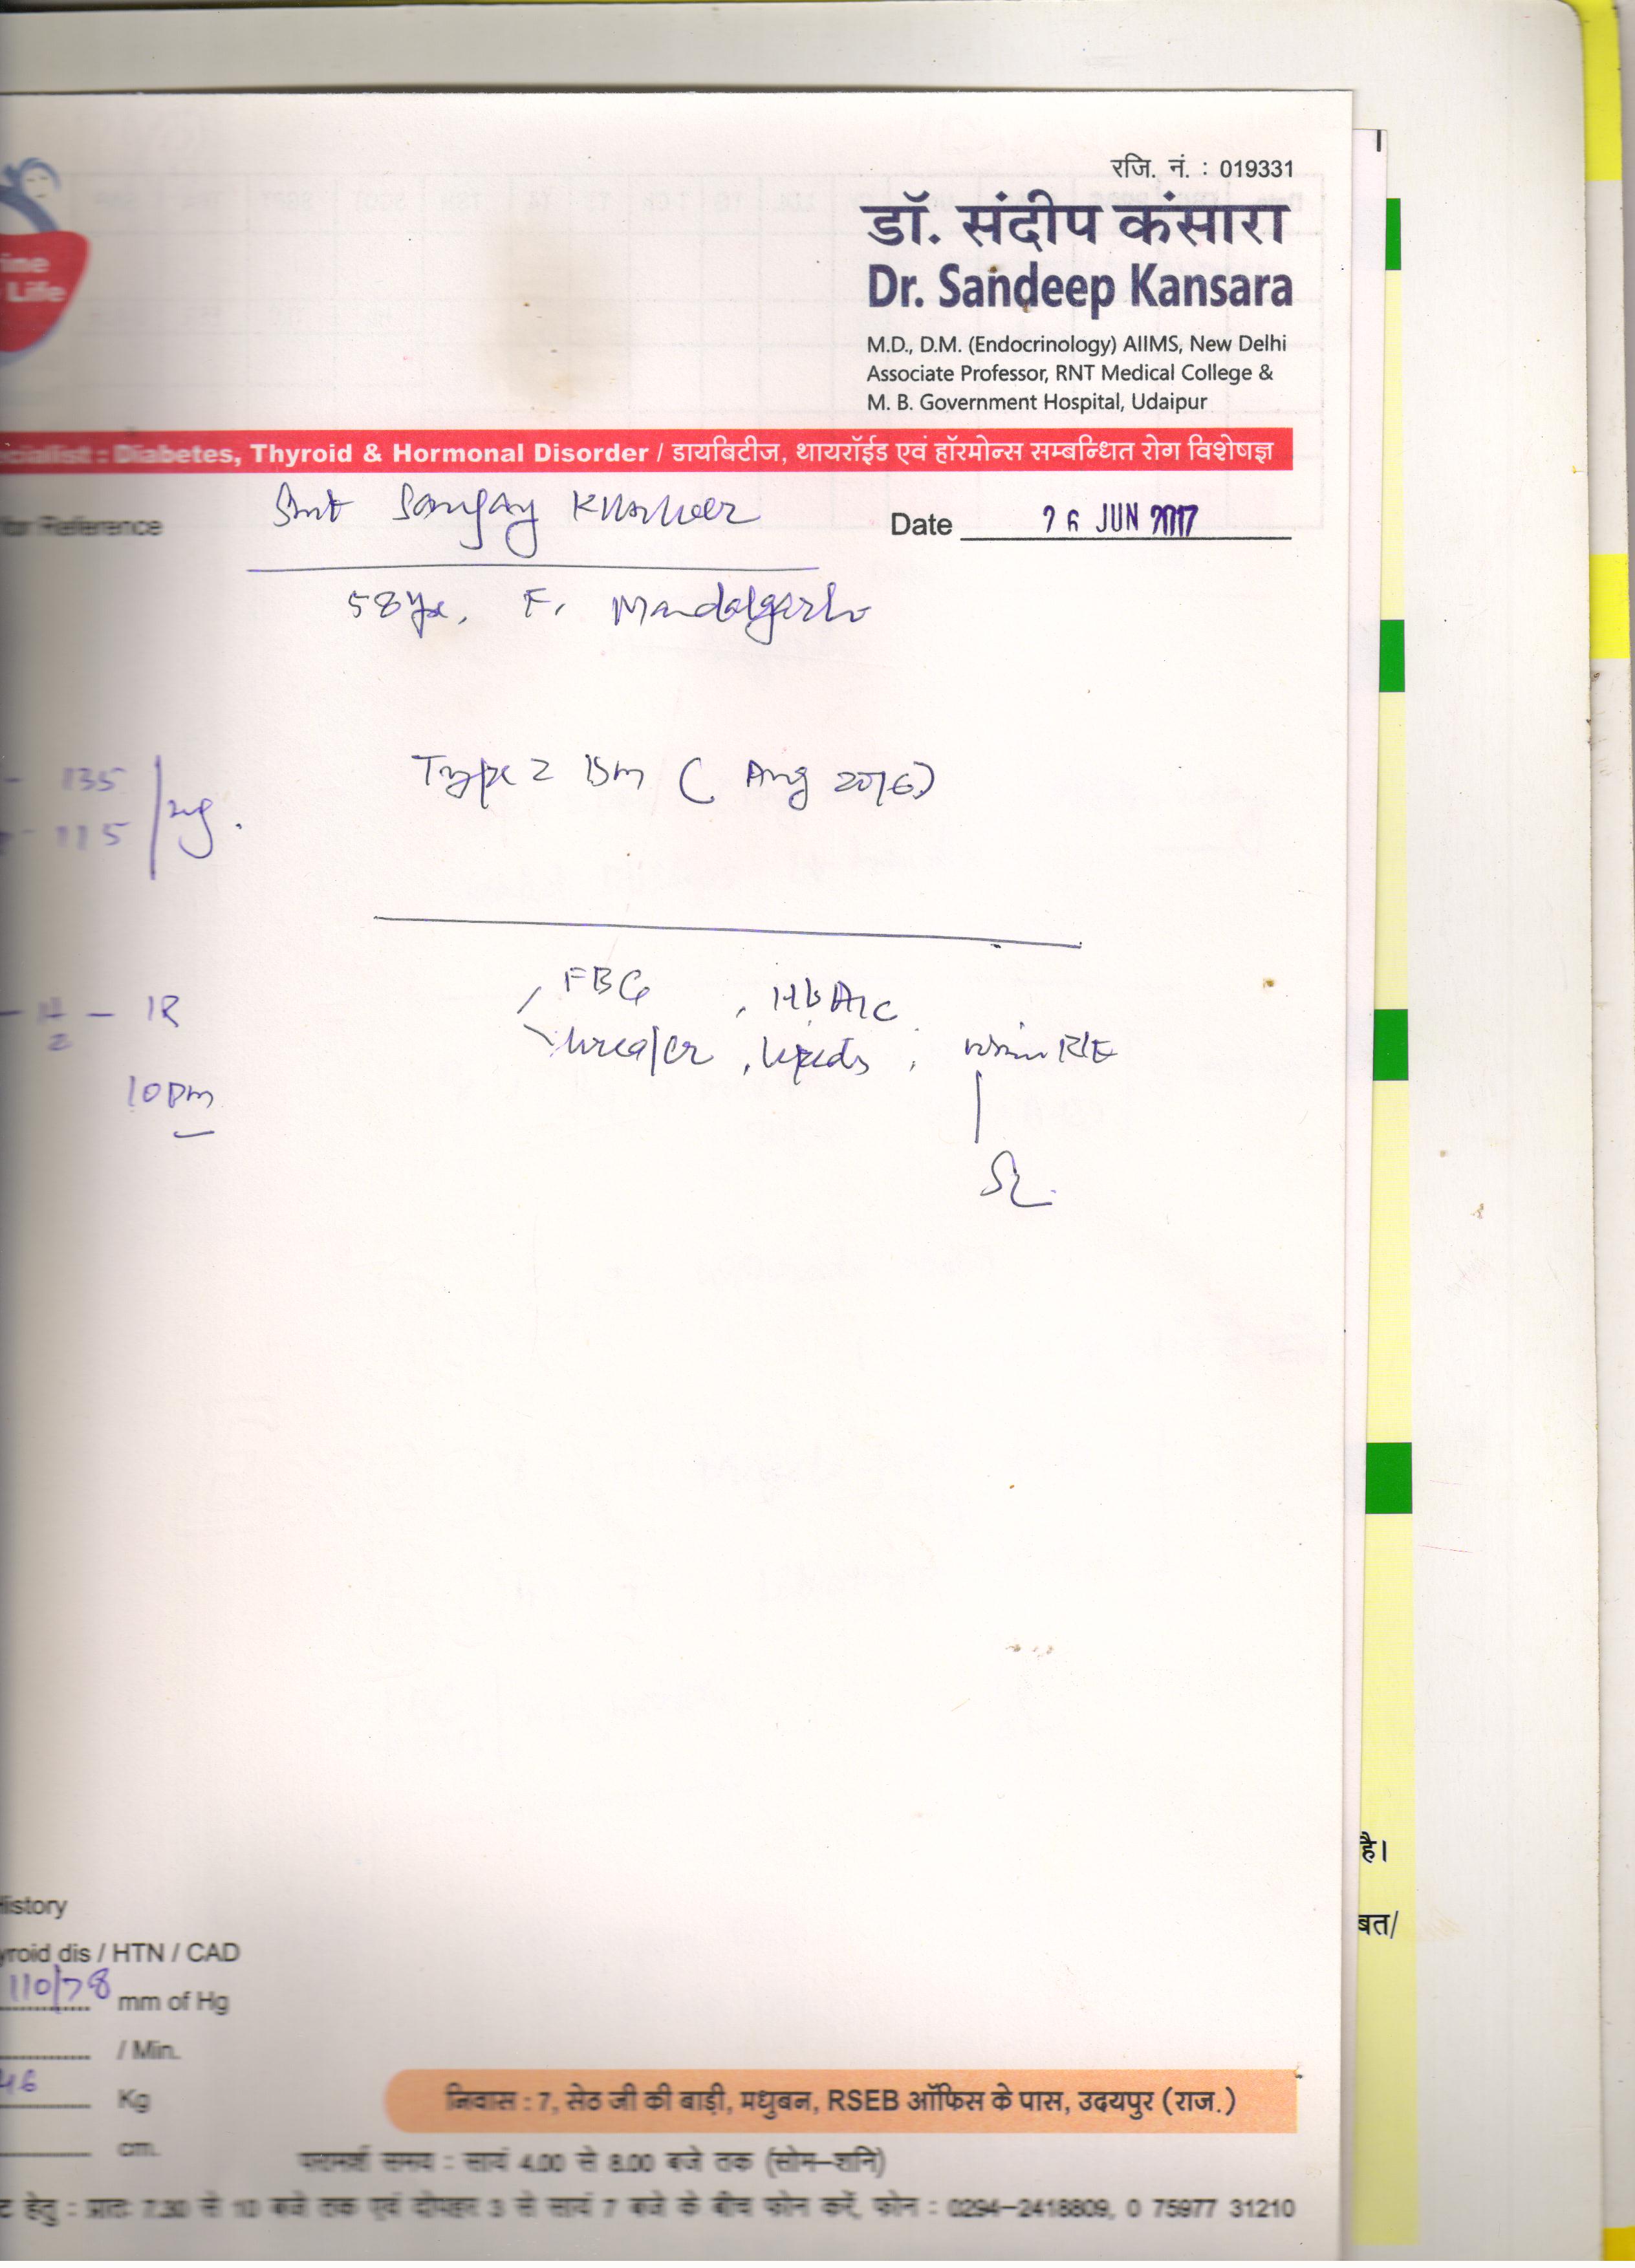 रजि. नं. : 019331
डॉ. संदीप कंसारा
Dr. Sandeep Kansara
ine
Life
M.D., D.M. (Endocrinology) AIIMS, New Delhi
Associate Professor, RNT Medical College &
M. B. Government Hospital, Udaipur
cialist : Diabetes, Thyroid & Hormonal Disorder / डायबिटीज, थायरॉईड एवं हॉरमोन्स सम्बन्धित रोग विशेषज्ञ
for Reference
Smt Sanjay
Date 26 JUN 2017
58 yr, F, Mandalgarh
Type 2 DM ( Aug 2016)
- 135
- 115
mg.
FBG , HbA1c
urea/cr , lipids , urine R/E
1R
10 pm
है।
बत/
History
yroid dis / HTN / CAD
110/78 mm of Hg
/ Min.
46 Kg
cm.
निवास : 7, सेठ जी की बाड़ी, मधुबन, RSEB ऑफिस के पास, उदयपुर (राज.)
परामर्श समय : सायं 4.00 से 8.00 बजे तक (सोम–शनि)
ट हेतु : प्रातः 7.30 से 10 बजे तक एवं दोपहर 3 से सायं 7 बजे के बीच फोन करें, फोन : 0294–2418809, 0 75977 31210